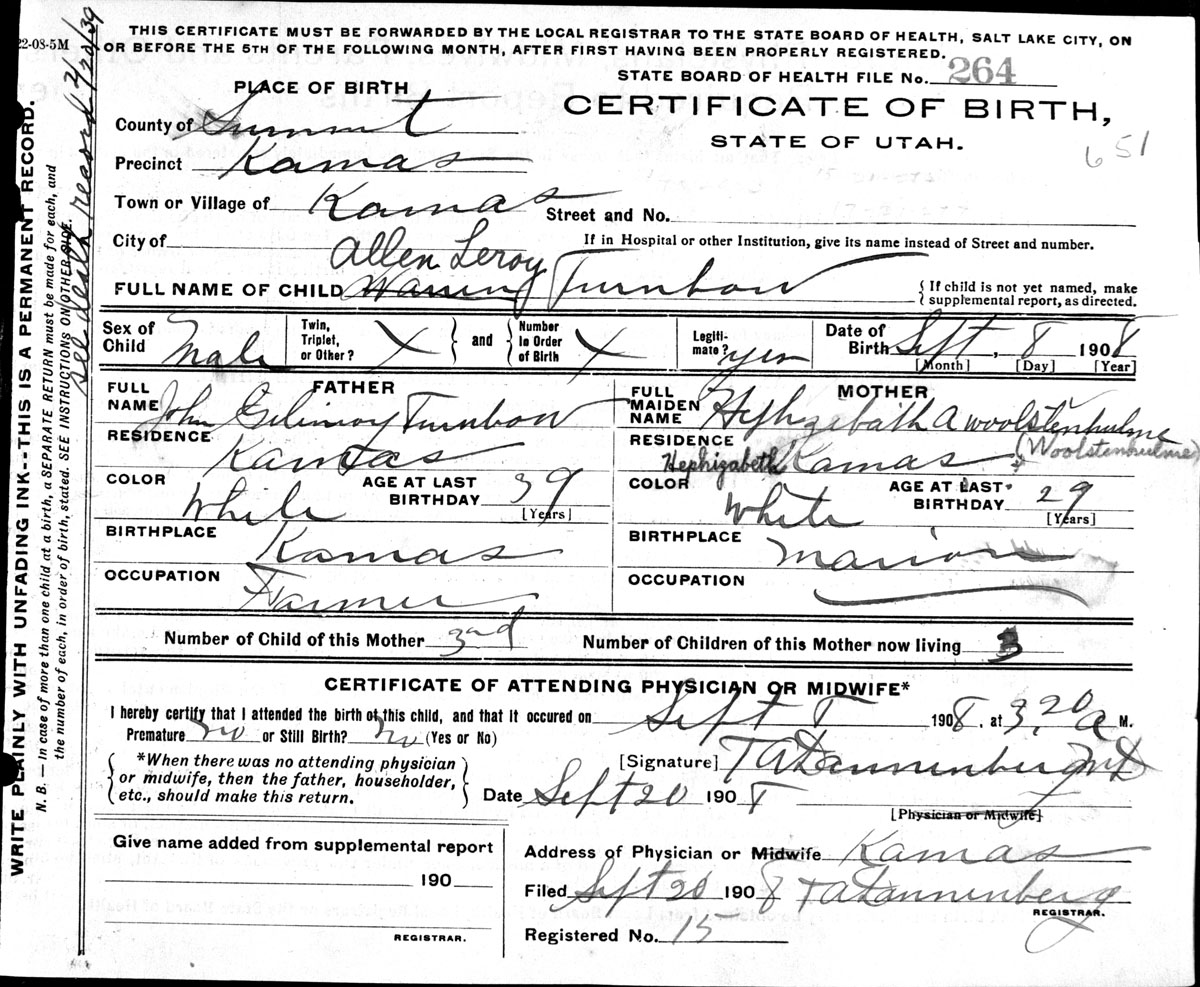 22-08-5M
THIS CERTIFICATE MUST BE FORWARDED BY THE LOCAL REGISTRAR TO THE STATE BOARD OF HEALTH, SALT LAKE CITY, ON
OR BEFORE THE 5TH OF THE FOLLOWING MONTH, AFTER FIRST HAVING BEEN PROPERLY REGISTERED.
STATE BOARD OF HEALTH FILE No. 264
PLACE OF BIRTH
CERTIFICATE OF BIRTH,
STATE OF UTAH.
651
County of Summit
Precinct Kamas
Town or Village of Kamas Street and No.
City of If in Hospital or other Institution, give its name instead of Street and number.
Allen Leroy
FULL NAME OF CHILD Warren Turnbow { If child is not yet named, make
supplemental report, as directed.
Sex of Child Male Twin, Triplet, or Other? X } and { Number in Order of Birth X Legiti-mate? yes Date of Birth Sept, 8 1908
[Month] [Day] [Year]
FATHER
FULL NAME John Turnbow
RESIDENCE Kamas
COLOR White AGE AT LAST BIRTHDAY 39
[Years]
BIRTHPLACE Kamas
OCCUPATION Farmer
MOTHER
FULL MAIDEN NAME Hephzebath A Woolstenhulme
(Woolstenhulme)
RESIDENCE Hephizabeth Kamas
COLOR White AGE AT LAST BIRTHDAY 29
[Years]
BIRTHPLACE Marion
OCCUPATION
Number of Child of this Mother 3rd Number of Children of this Mother now living 3
CERTIFICATE OF ATTENDING PHYSICIAN OR MIDWIFE*
I hereby certify that I attended the birth of this child, and that it occured on Sept 8 1908, at 3,20 a M.
Premature no or Still Birth? no (Yes or No)
{ *When there was no attending physician
or midwife, then the father, householder,
etc., should make this return. }
[Signature] T A Dannenberg MD
Date Sept 20 1908
[Physician or Midwife]
Give name added from supplemental report
190
REGISTRAR.
Address of Physician or Midwife Kamas
Filed Sept 20 1908 T A Dannenberg
REGISTRAR.
Registered No. 15
WRITE PLAINLY WITH UNFADING INK--THIS IS A PERMANENT RECORD.
N. B. — In case of more than one child at a birth, a SEPARATE RETURN must be made for each, and
the number of each, in order of birth, stated. SEE INSTRUCTIONS ON OTHER SIDE.
See death record